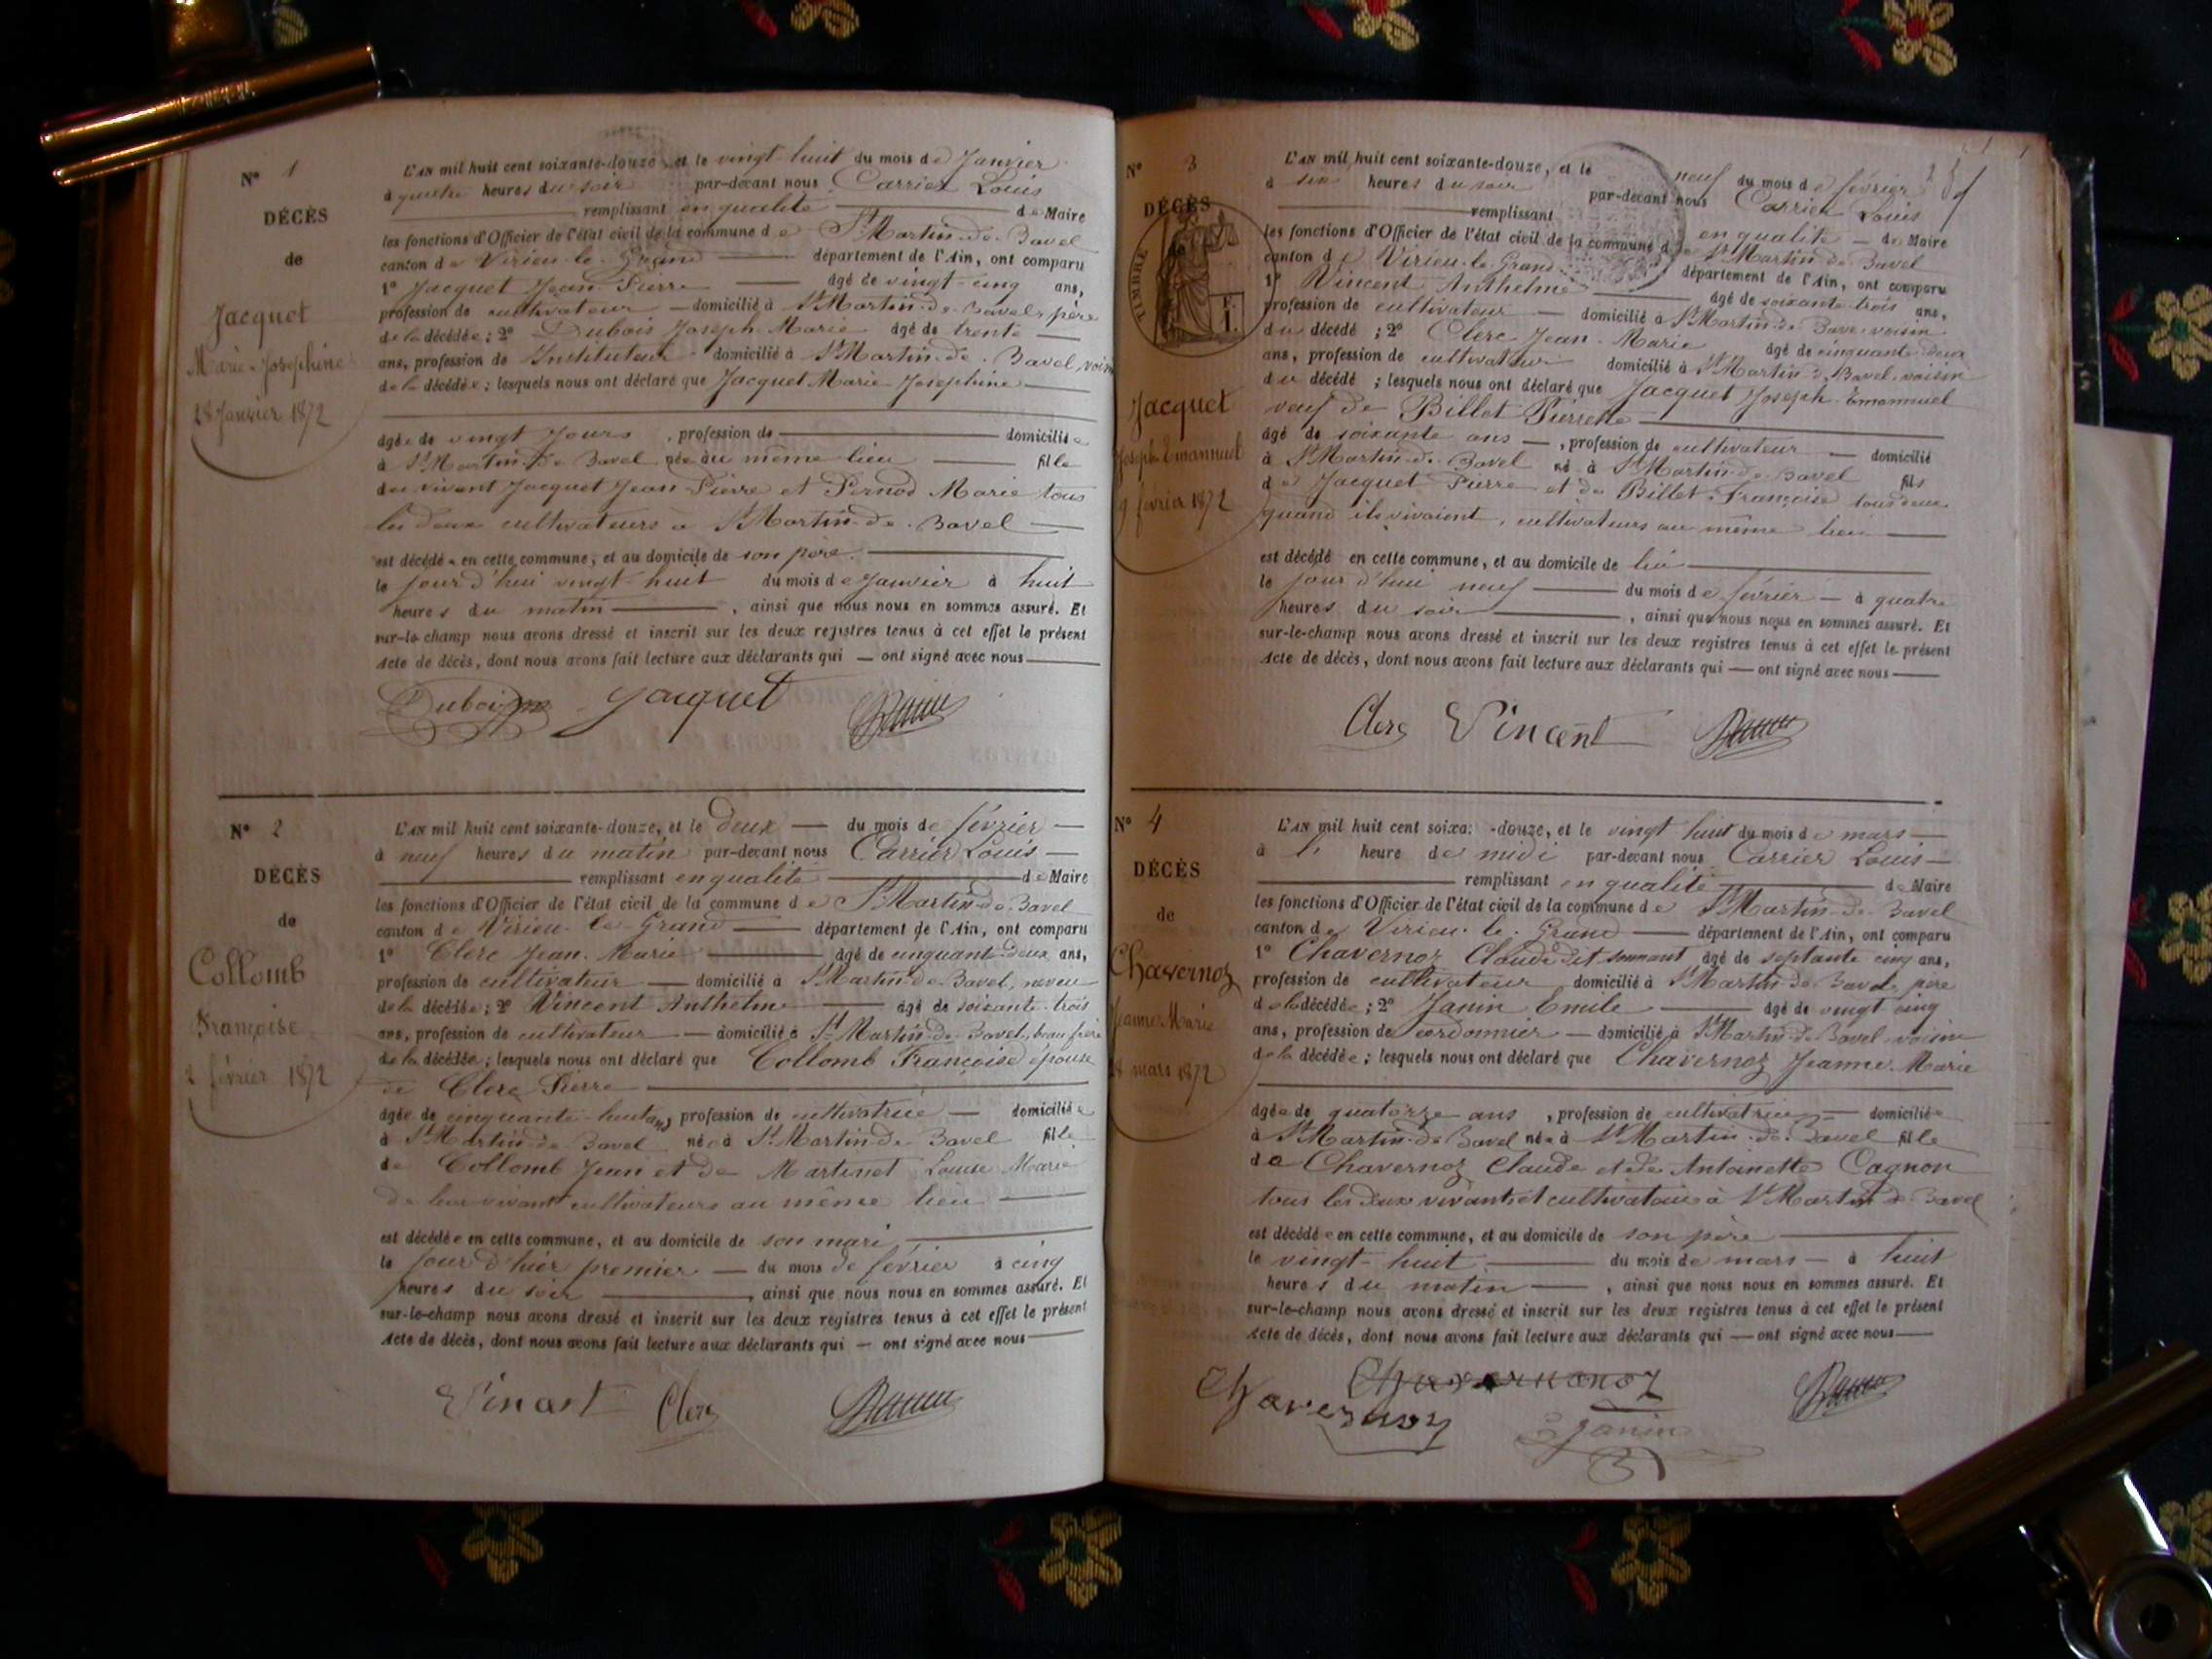 N° 1
DÉCÈS
de
Jacquet
Marie-Josephine
28 Janvier 1872
L'AN mil huit cent soixante-douze, et le vingt-huit du mois de Janvier
à quatre heures du soir par-devant nous Carrier Louis
remplissant en qualité de Maire
les fonctions d'Officier de l'état civil de la commune de St Martin-de-Bavel
canton de Virieu-le-Grand département de l'Ain, ont comparu
1° Jacquet Jean Pierre âgé de vingt-cinq ans,
profession de cultivateur domicilié à St Martin-de-Bavel, père
de la décédée; 2° Dubois Joseph-Marie âgé de trente
ans, profession de Instituteur domicilié à St Martin-de-Bavel, voisin
de la décédée; lesquels nous ont déclaré que Jacquet Marie-Josephine
âgée de vingt jours, profession de domiciliée
à St Martin-de-Bavel née au même lieu fille
du vivant Jacquet Jean-Pierre et Pernod Marie tous
les deux cultivateurs à St Martin-de-Bavel
est décédée en cette commune, et au domicile de son père.
le jour d'hui vingt-huit du mois de Janvier à huit
heures du matin, ainsi que nous nous en sommes assuré. Et
sur-le-champ nous avons dressé et inscrit sur les deux registres tenus à cet effet le présent
Acte de décès, dont nous avons fait lecture aux déclarants qui ont signé avec nous
Dubois Jacquet
N° 2
DÉCÈS
de
Collomb
Françoise
2 février 1872
L'AN mil huit cent soixante-douze, et le deux du mois de février
à neuf heures du matin par-devant nous Carrier Louis
remplissant en qualité de Maire
les fonctions d'Officier de l'état civil de la commune de St Martin-de-Bavel
canton de Virieu-le-Grand département de l'Ain, ont comparu
1° Clerc Jean-Marie âgé de cinquante-deux ans,
profession de cultivateur domicilié à St Martin-de-Bavel, neveu
de la décédée; 2° Vincent Anthelme âgé de soixante-trois
ans, profession de cultivateur domicilié à St Martin-de-Bavel, beau frère
de la décédée; lesquels nous ont déclaré que Collomb Françoise épouse
de Clerc Pierre
âgée de cinquante-huit ans, profession de cultivatrice domiciliée
à St Martin de Bavel née à St Martin-de-Bavel fille
de Collomb Jean et de Martinet Louise Marie
de leur vivant cultivateurs au même lieu
est décédée en cette commune, et au domicile de son mari,
le jour d'hier premier du mois de février à cinq
heures du soir, ainsi que nous nous en sommes assuré. Et
sur-le-champ nous avons dressé et inscrit sur les deux registres tenus à cet effet le présent
Acte de décès, dont nous avons fait lecture aux déclarants qui ont signé avec nous
Clerc
N° 3
DÉCÈS
de
TIMBRE
Jacquet
Joseph Emannuel
9 février 1872
L'AN mil huit cent soixante-douze, et le neuf du mois de février
à six heures du soir par-devant nous Carrier Louis
remplissant en qualité de Maire
les fonctions d'Officier de l'état civil de la commune de St Martin-de-Bavel
canton de Virieu-le-Grand département de l'Ain, ont comparu
1° Vincent Anthelme âgé de soixante-trois ans,
profession de cultivateur domicilié à St Martin-de-Bavel voisin
du décédé; 2° Clerc Jean-Marie âgé de cinquante-deux
ans, profession de cultivateur domicilié à St Martin-de-Bavel, voisin
du décédé; lesquels nous ont déclaré que Jacquet Joseph-Emannuel
veuf de Billet Pierrette
âgé de soixante ans, profession de cultivateur domicilié
à St Martin-de-Bavel né à St Martin-de-Bavel fils
de Jacquet Pierre et de Billet Françoise tous deux
quand ils vivaient, cultivateurs au même lieu
est décédé en cette commune, et au domicile de lui
le jour d'hui neuf du mois de février à quatre
heures du soir, ainsi que nous nous en sommes assuré. Et
sur-le-champ nous avons dressé et inscrit sur les deux registres tenus à cet effet le présent
Acte de décès, dont nous avons fait lecture aux déclarants qui ont signé avec nous
Clerc Vincent
N° 4
DÉCÈS
de
Chavernoz
Jeanne Marie
28 mars 1872
L'AN mil huit cent soixa -douze, et le vingt huit du mois de mars
à heure de midi par-devant nous Carrier Louis
remplissant en qualité de Maire
les fonctions d'Officier de l'état civil de la commune de St Martin-de-Bavel
canton de Virieu-le-Grand département de l'Ain, ont comparu
1° Chavernoz Claude dit âgé de septante cinq ans,
profession de cultivateur domicilié à St Martin-de-Bavel père
de la décédée; 2° Janin Emile âgé de vingt cinq
ans, profession de cordonnier domicilié à St Martin-de-Bavel voisin
de la décédée; lesquels nous ont déclaré que Chavernoz Jeanne-Marie
âgée de quatorze ans, profession de cultivatrice domiciliée
à St Martin-de-Bavel née à St Martin-de-Bavel fille
de Chavernoz Claude et de Antoinette Cagnon
tous les deux vivants et cultivateurs à St Martin de Bavel
est décédée en cette commune, et au domicile de son père
le vingt-huit du mois de mars à huit
heures du matin, ainsi que nous nous en sommes assuré. Et
sur-le-champ nous avons dressé et inscrit sur les deux registres tenus à cet effet le présent
Acte de décès, dont nous avons fait lecture aux déclarants qui ont signé avec nous
Chavernoz
Janin